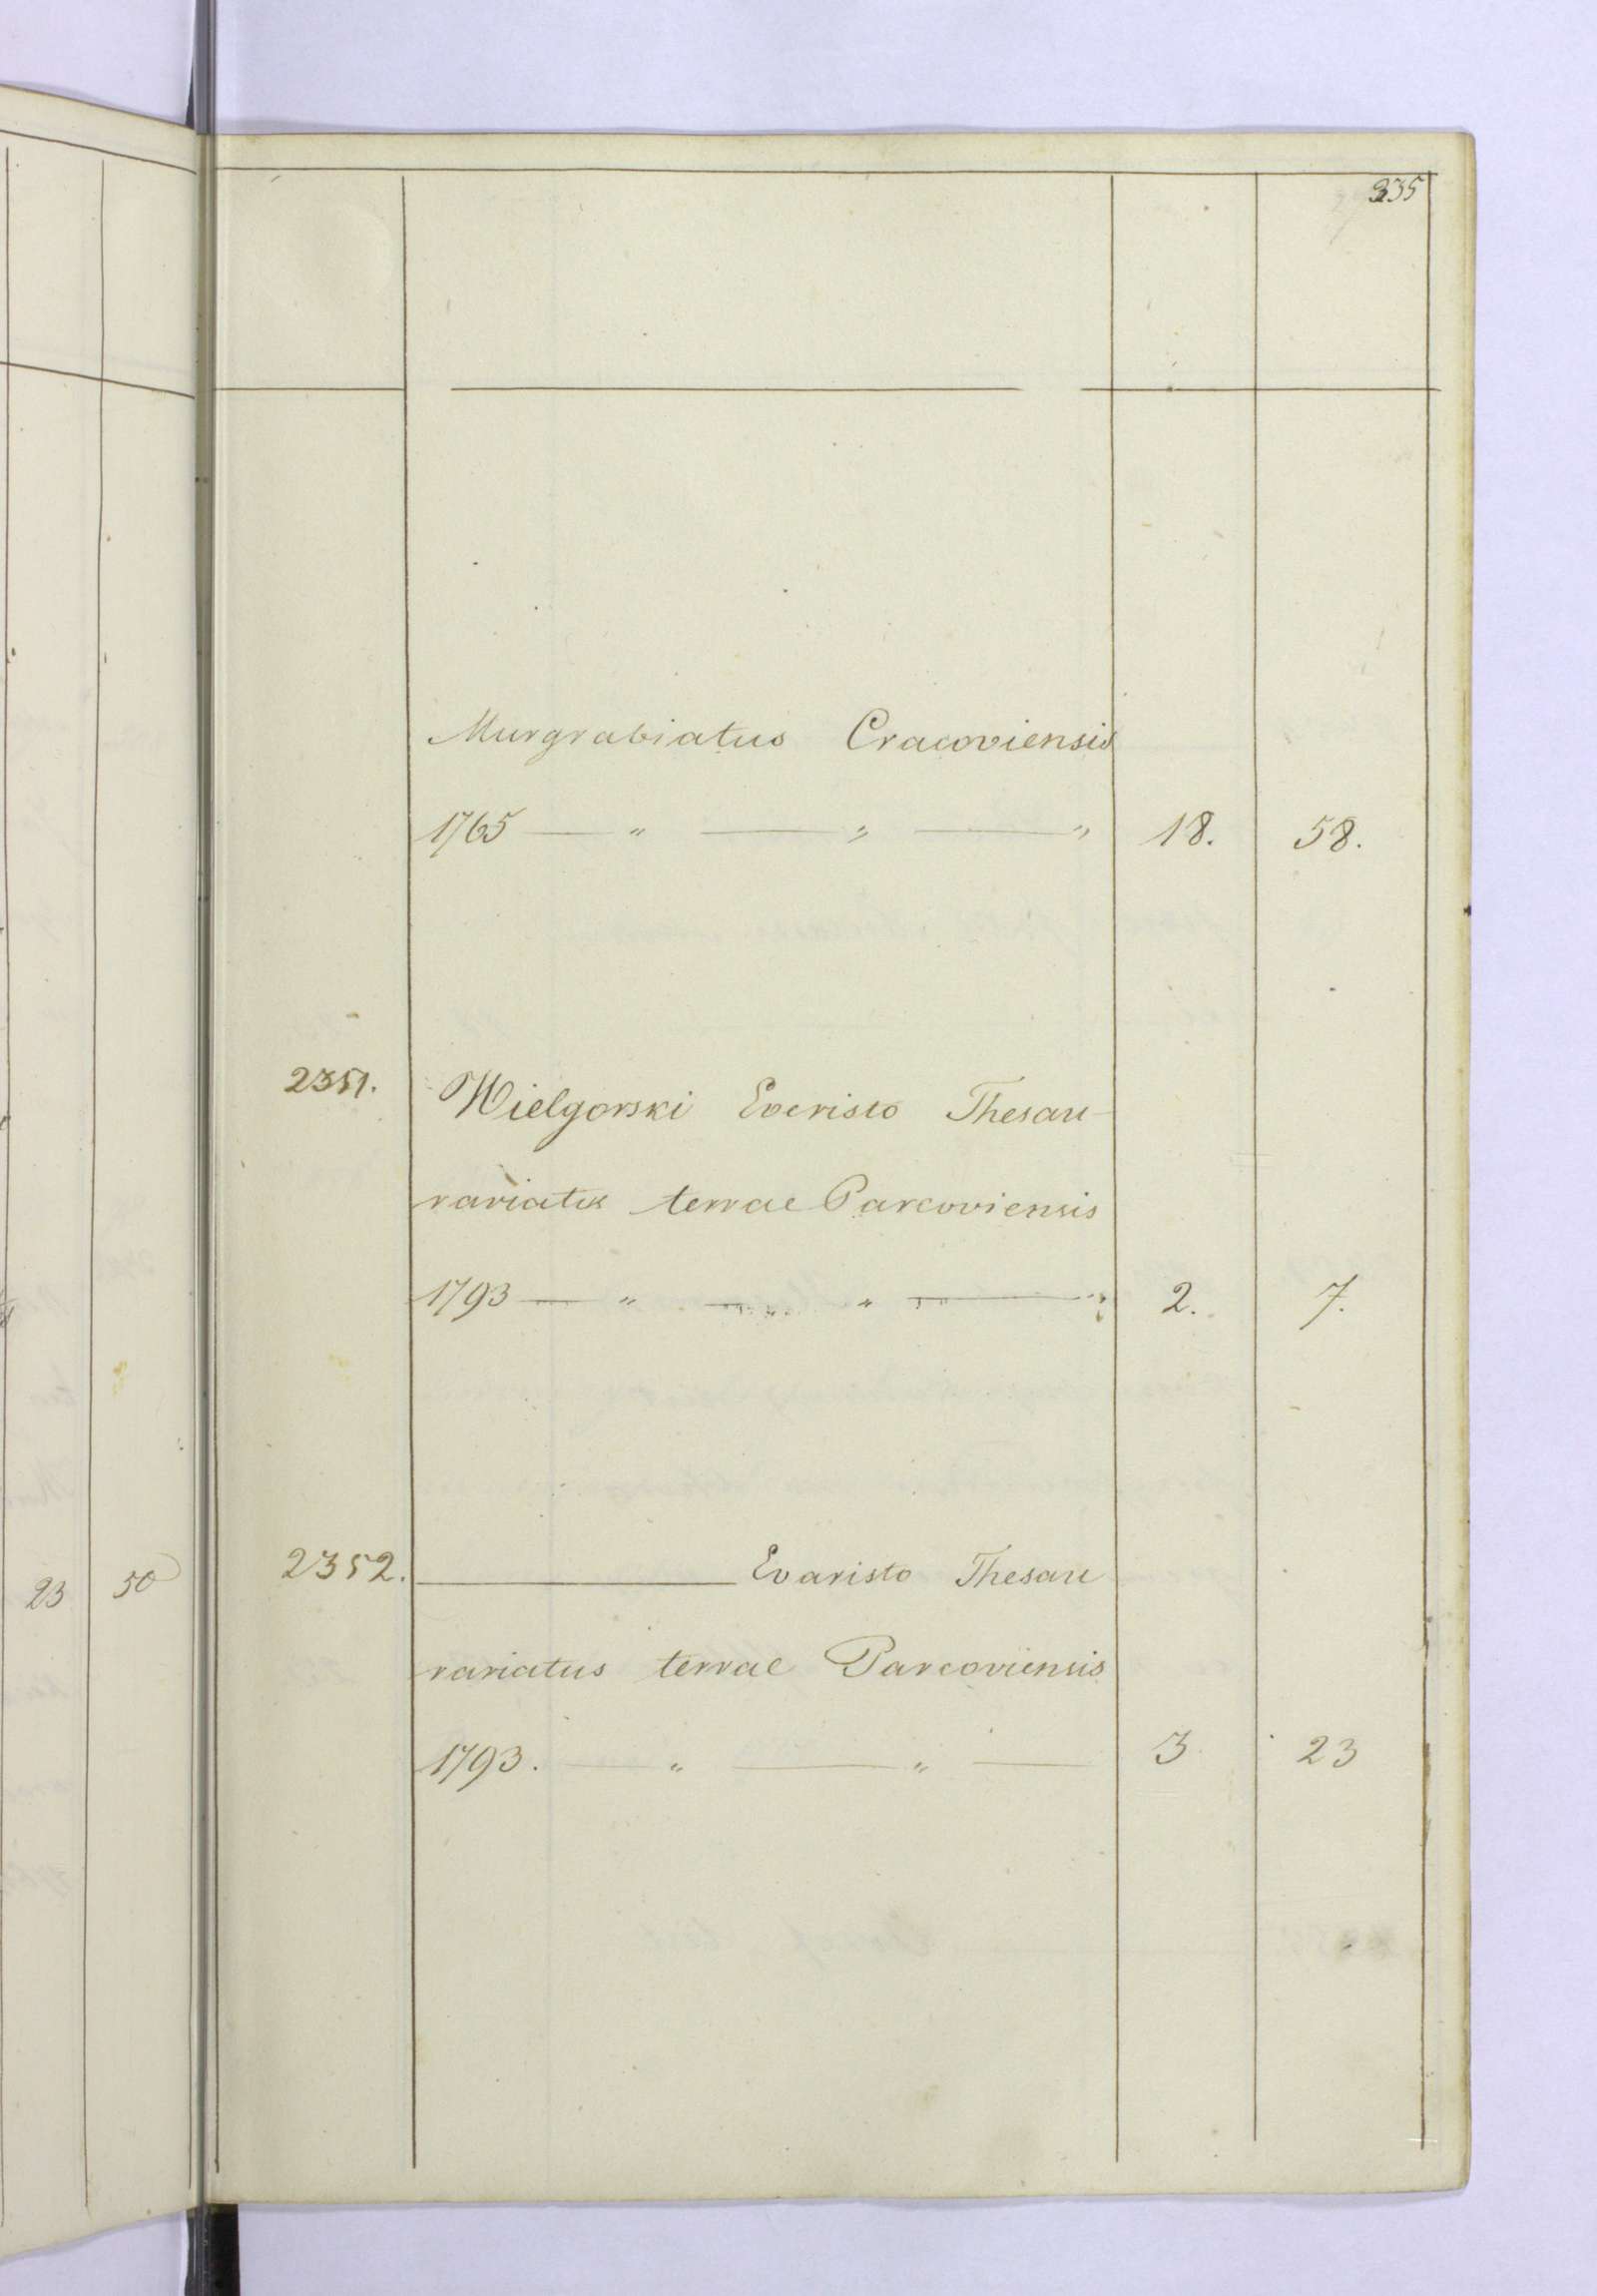 335
Murgrabiatus Cracoviensis
1765 — " — " — " 18. 58.
2351. Wielgorski Everisto Thesau-
rariatus terrae Parcoviensis
1793 — " — " — " 2. 7.
2352. — Evaristo Thesau
rariatus terrae Parcoviensis
1793. — " — " — 3 23
23 50